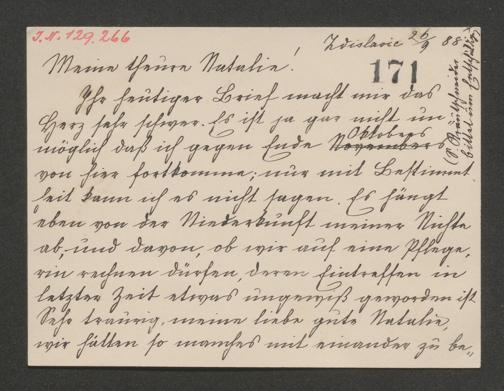 J.N. 129.266
Zdislavic 26/9 88
171
Meine theure Natalie!
Ihr heutiger Brief macht mir das
Herz sehr schwer. Es ist ja gar nicht un
möglich daß ich gegen Ende Novembers
Oktobers
von hier fortkomme; nur mit Bestimmt
heit kann ich es nicht sagen. Es hängt
eben von der Niederkunft meiner Nichte
ab, und davon, ob wir auf eine Pflege,
rin rechnen dürfen, deren Eintreffen in
letzter Zeit etwas ungewiß geworden ist
Sehr traurig, meine liebe gute Natalie,
wir hätten so manches mit einander zu be-